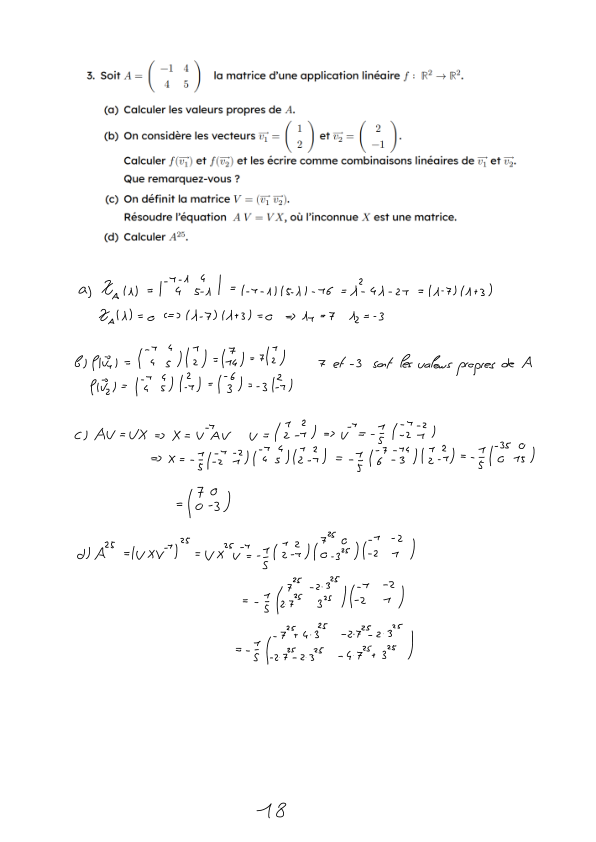 3. Soit A = ( −1 4 ; 4 5 ) la matrice d'une application linéaire f : ℝ² → ℝ².
(a) Calculer les valeurs propres de A.
(b) On considère les vecteurs v₁⃗ = ( 1 ; 2 ) et v₂⃗ = ( 2 ; −1 ).
Calculer f(v₁⃗) et f(v₂⃗) et les écrire comme combinaisons linéaires de v₁⃗ et v₂⃗.
Que remarquez-vous ?
(c) On définit la matrice V = (v₁⃗ v₂⃗).
Résoudre l'équation A V = V X, où l'inconnue X est une matrice.
(d) Calculer A²⁵.
a) χ_A(λ) = | -1-λ 4 ; 4 5-λ | = (-1-λ)(5-λ) - 16 = λ² - 4λ - 21 = (λ-7)(λ+3)
χ_A(λ) = 0 <=> (λ-7)(λ+3) = 0 => λ₁ = 7 λ₂ = -3
b) f(v₁⃗) = ( -1 4 ; 4 5 )( 1 ; 2 ) = ( 7 ; 14 ) = 7( 1 ; 2 ) 7 et -3 sont les valeurs propres de A
f(v₂⃗) = ( -1 4 ; 4 5 )( 2 ; -1 ) = ( -6 ; 3 ) = -3( 2 ; -1 )
c) AV = VX => X = V⁻¹AV V = ( 1 2 ; 2 -1 ) => V⁻¹ = -1/5 ( -1 -2 ; -2 1 )
=> X = -1/5 ( -1 -2 ; -2 1 )( -1 4 ; 4 5 )( 1 2 ; 2 -1 ) = -1/5 ( -7 -14 ; 6 -3 )( 1 2 ; 2 -1 ) = -1/5 ( -35 0 ; 0 15 )
= ( 7 0 ; 0 -3 )
d) A²⁵ = (VXV⁻¹)²⁵ = VX²⁵V⁻¹ = -1/5 ( 1 2 ; 2 -1 )( 7²⁵ 0 ; 0 -3²⁵ )( -1 -2 ; -2 1 )
= -1/5 ( 7²⁵ -2·3²⁵ ; 2·7²⁵ 3²⁵ )( -1 -2 ; -2 1 )
= -1/5 ( -7²⁵ + 4·3²⁵ -2·7²⁵ - 2·3²⁵ ; -2·7²⁵ - 2·3²⁵ -4·7²⁵ + 3²⁵ )
18